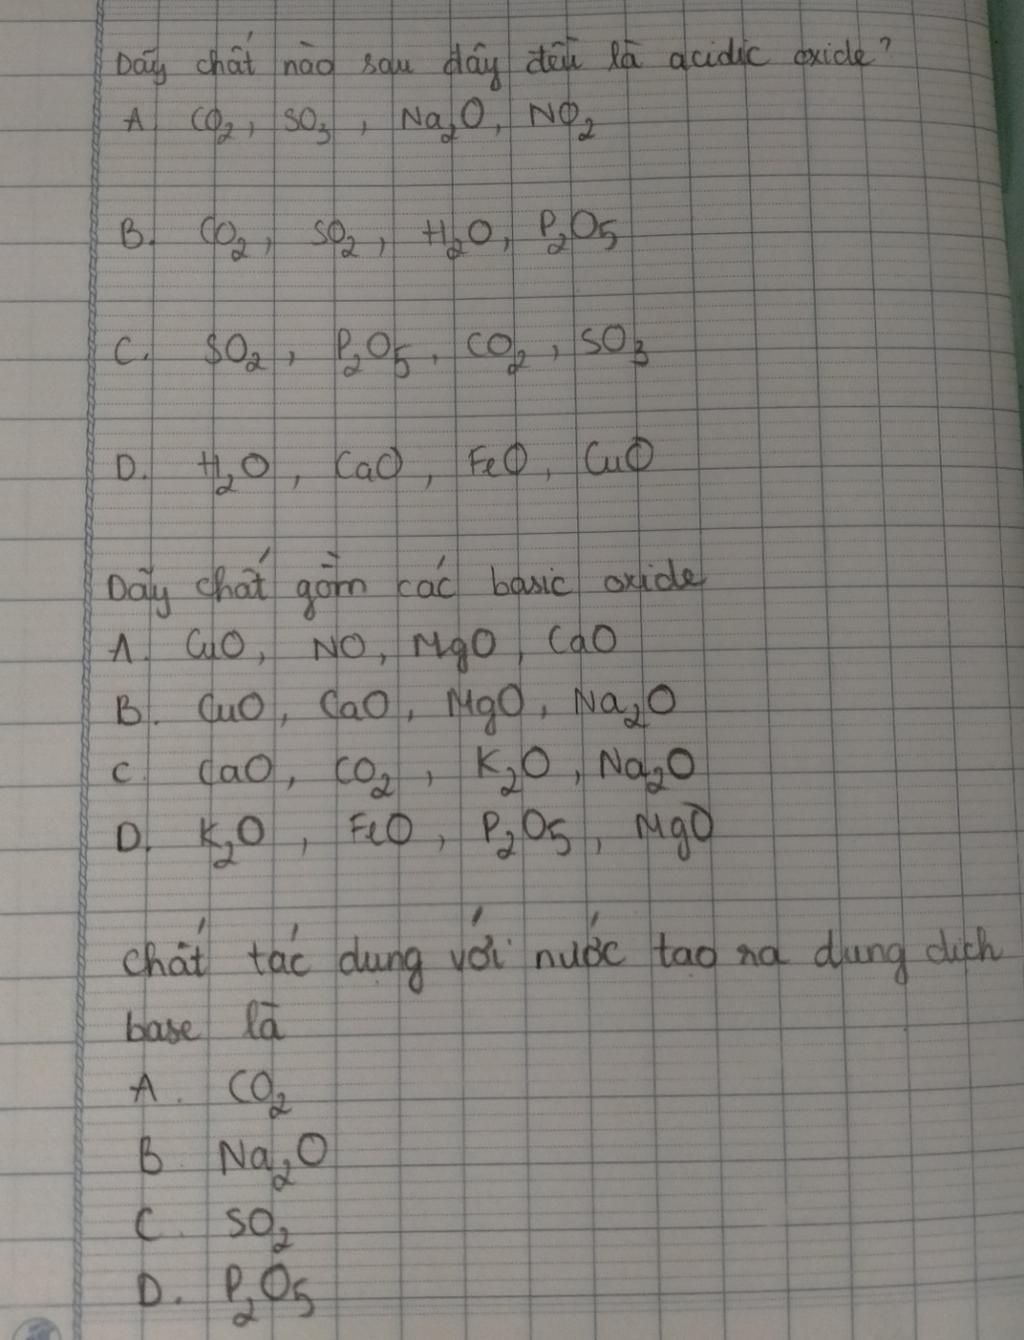 Dãy chất nào sau đây đều là acidic oxide?
A CO₂, SO₃, Na₂O, NO₂
B. CO₂, SO₂, H₂O, P₂O₅
C. SO₂, P₂O₅, CO₂, SO₃
D. H₂O, CaO, FeO, CuO
Dãy chất gồm các basic oxide
A. CuO, NO, MgO, CaO
B. CuO, CaO, MgO, Na₂O
C. CaO, CO₂, K₂O, Na₂O
D. K₂O, FeO, P₂O₅, MgO
chất tác dung với nước tao ra dung dich
base là
A. CO₂
B Na₂O
C. SO₂
D. P₂O₅